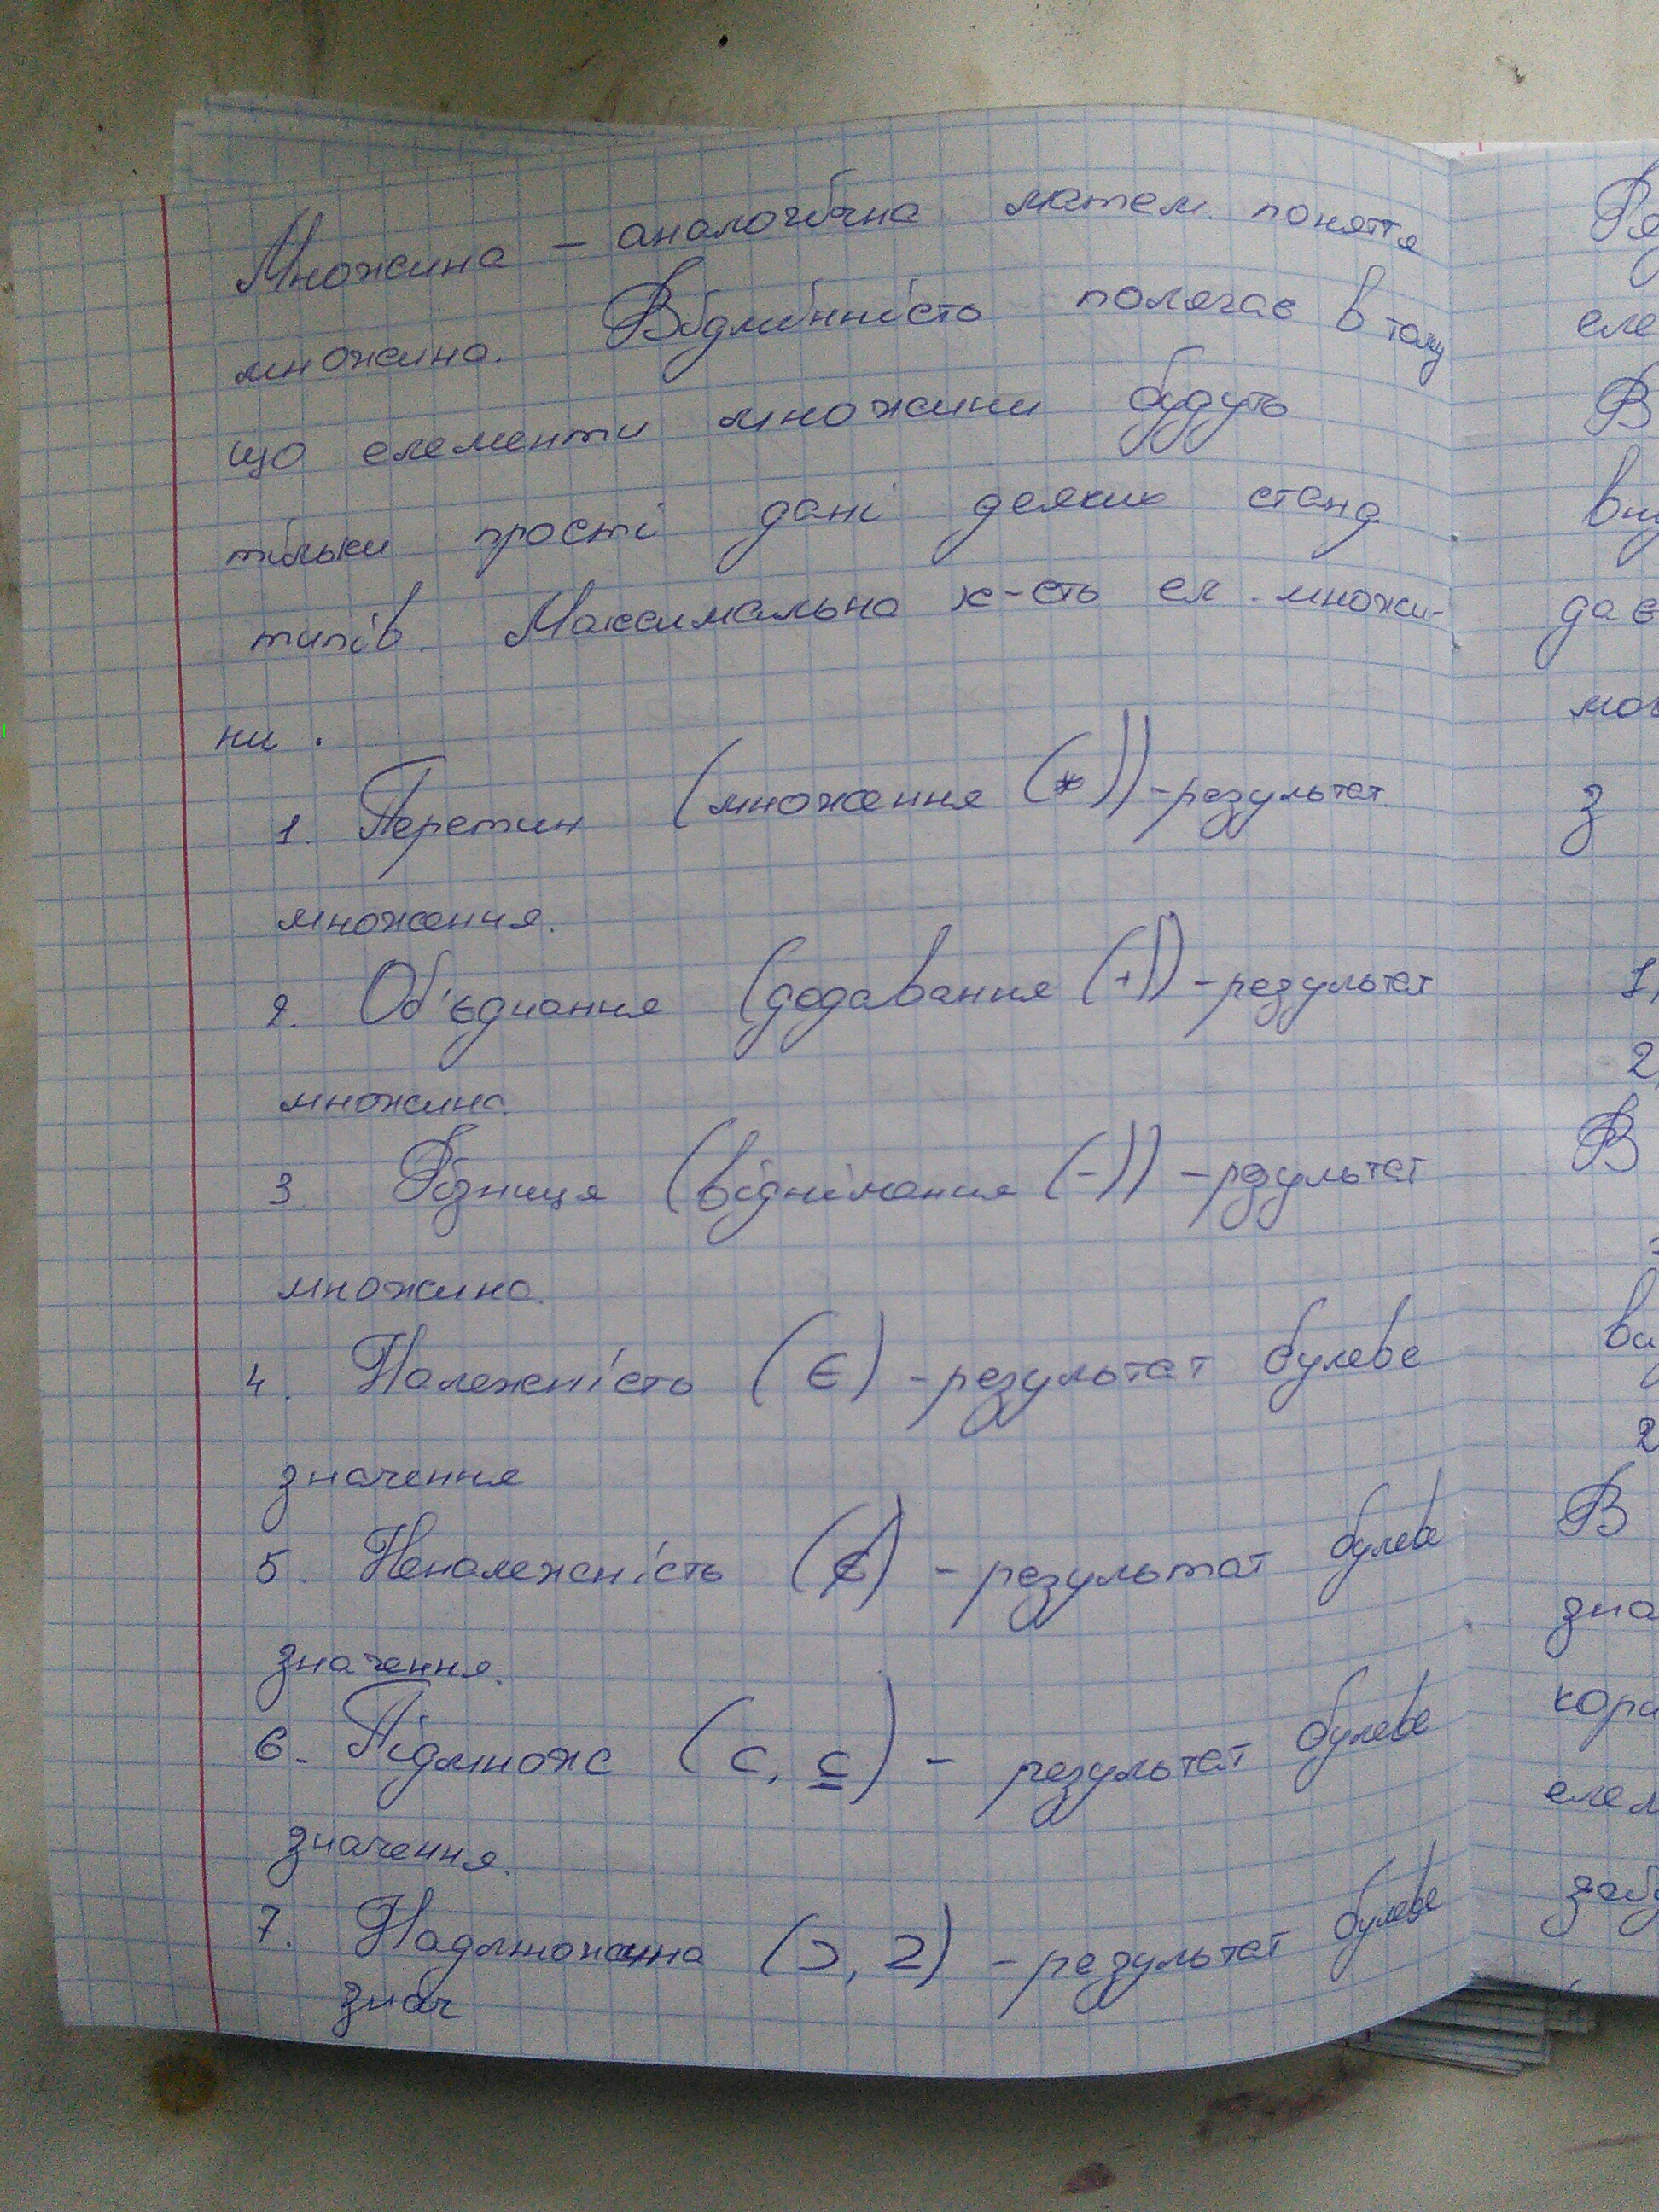 Множина – аналогічна матем. поняття
множина. Відмінність полягає в тому
що елементи множини будуть
тільки прості дані деяких станд
типів. Максимальна к-сть ел. множи-
ни.
1. Перетин (множення (*)) - результат
множення.
2. Об'єднання (додавання (+)) - результат
множина.
3. Різниця (віднімання (-)) - результат
множина.
4. Належність (∈) - результат булеве
значення
5. Неналежність (∉) - результат булеве
значення.
6. Підмнож (⊂, ⊆) - результат булеве
значення.
7. Надмножина (⊃, ⊇) - результат булеве
знач